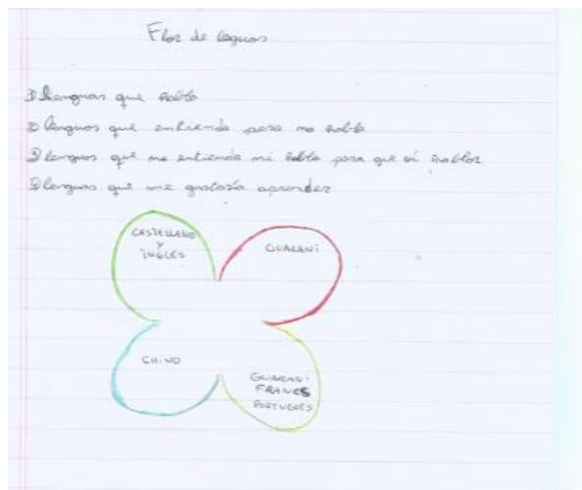 Flor de lenguas
1) Lenguas que hablo
2) lenguas que entiendo pero no hablo
3) lenguas que no entiendo ni hablo para que oi hablar
4) lenguas que me gustaría aprender
CASTELLANO
Y
INGLES
GUARANI
CHINO
GUARANI
FRANCES
PORTUGUES